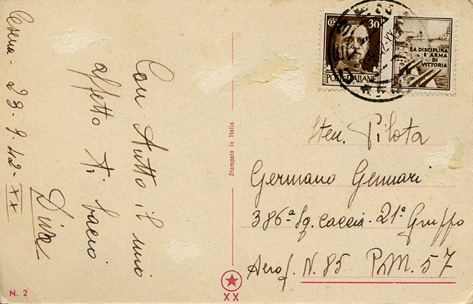 Cesena - 23-9-42-XX
Con tutto il mio
affetto ti bacio
Diva
CENT 30
POSTE ITALIANE
LA DISCIPLINA
È ARMA
DI
VITTORIA
Sten. Pilota
Germano Gennari
386ª Sq. Caccia - 21º Gruppo
Aerof. N. 85 P.M. 57
Stampato in Italia
N. 2
XX